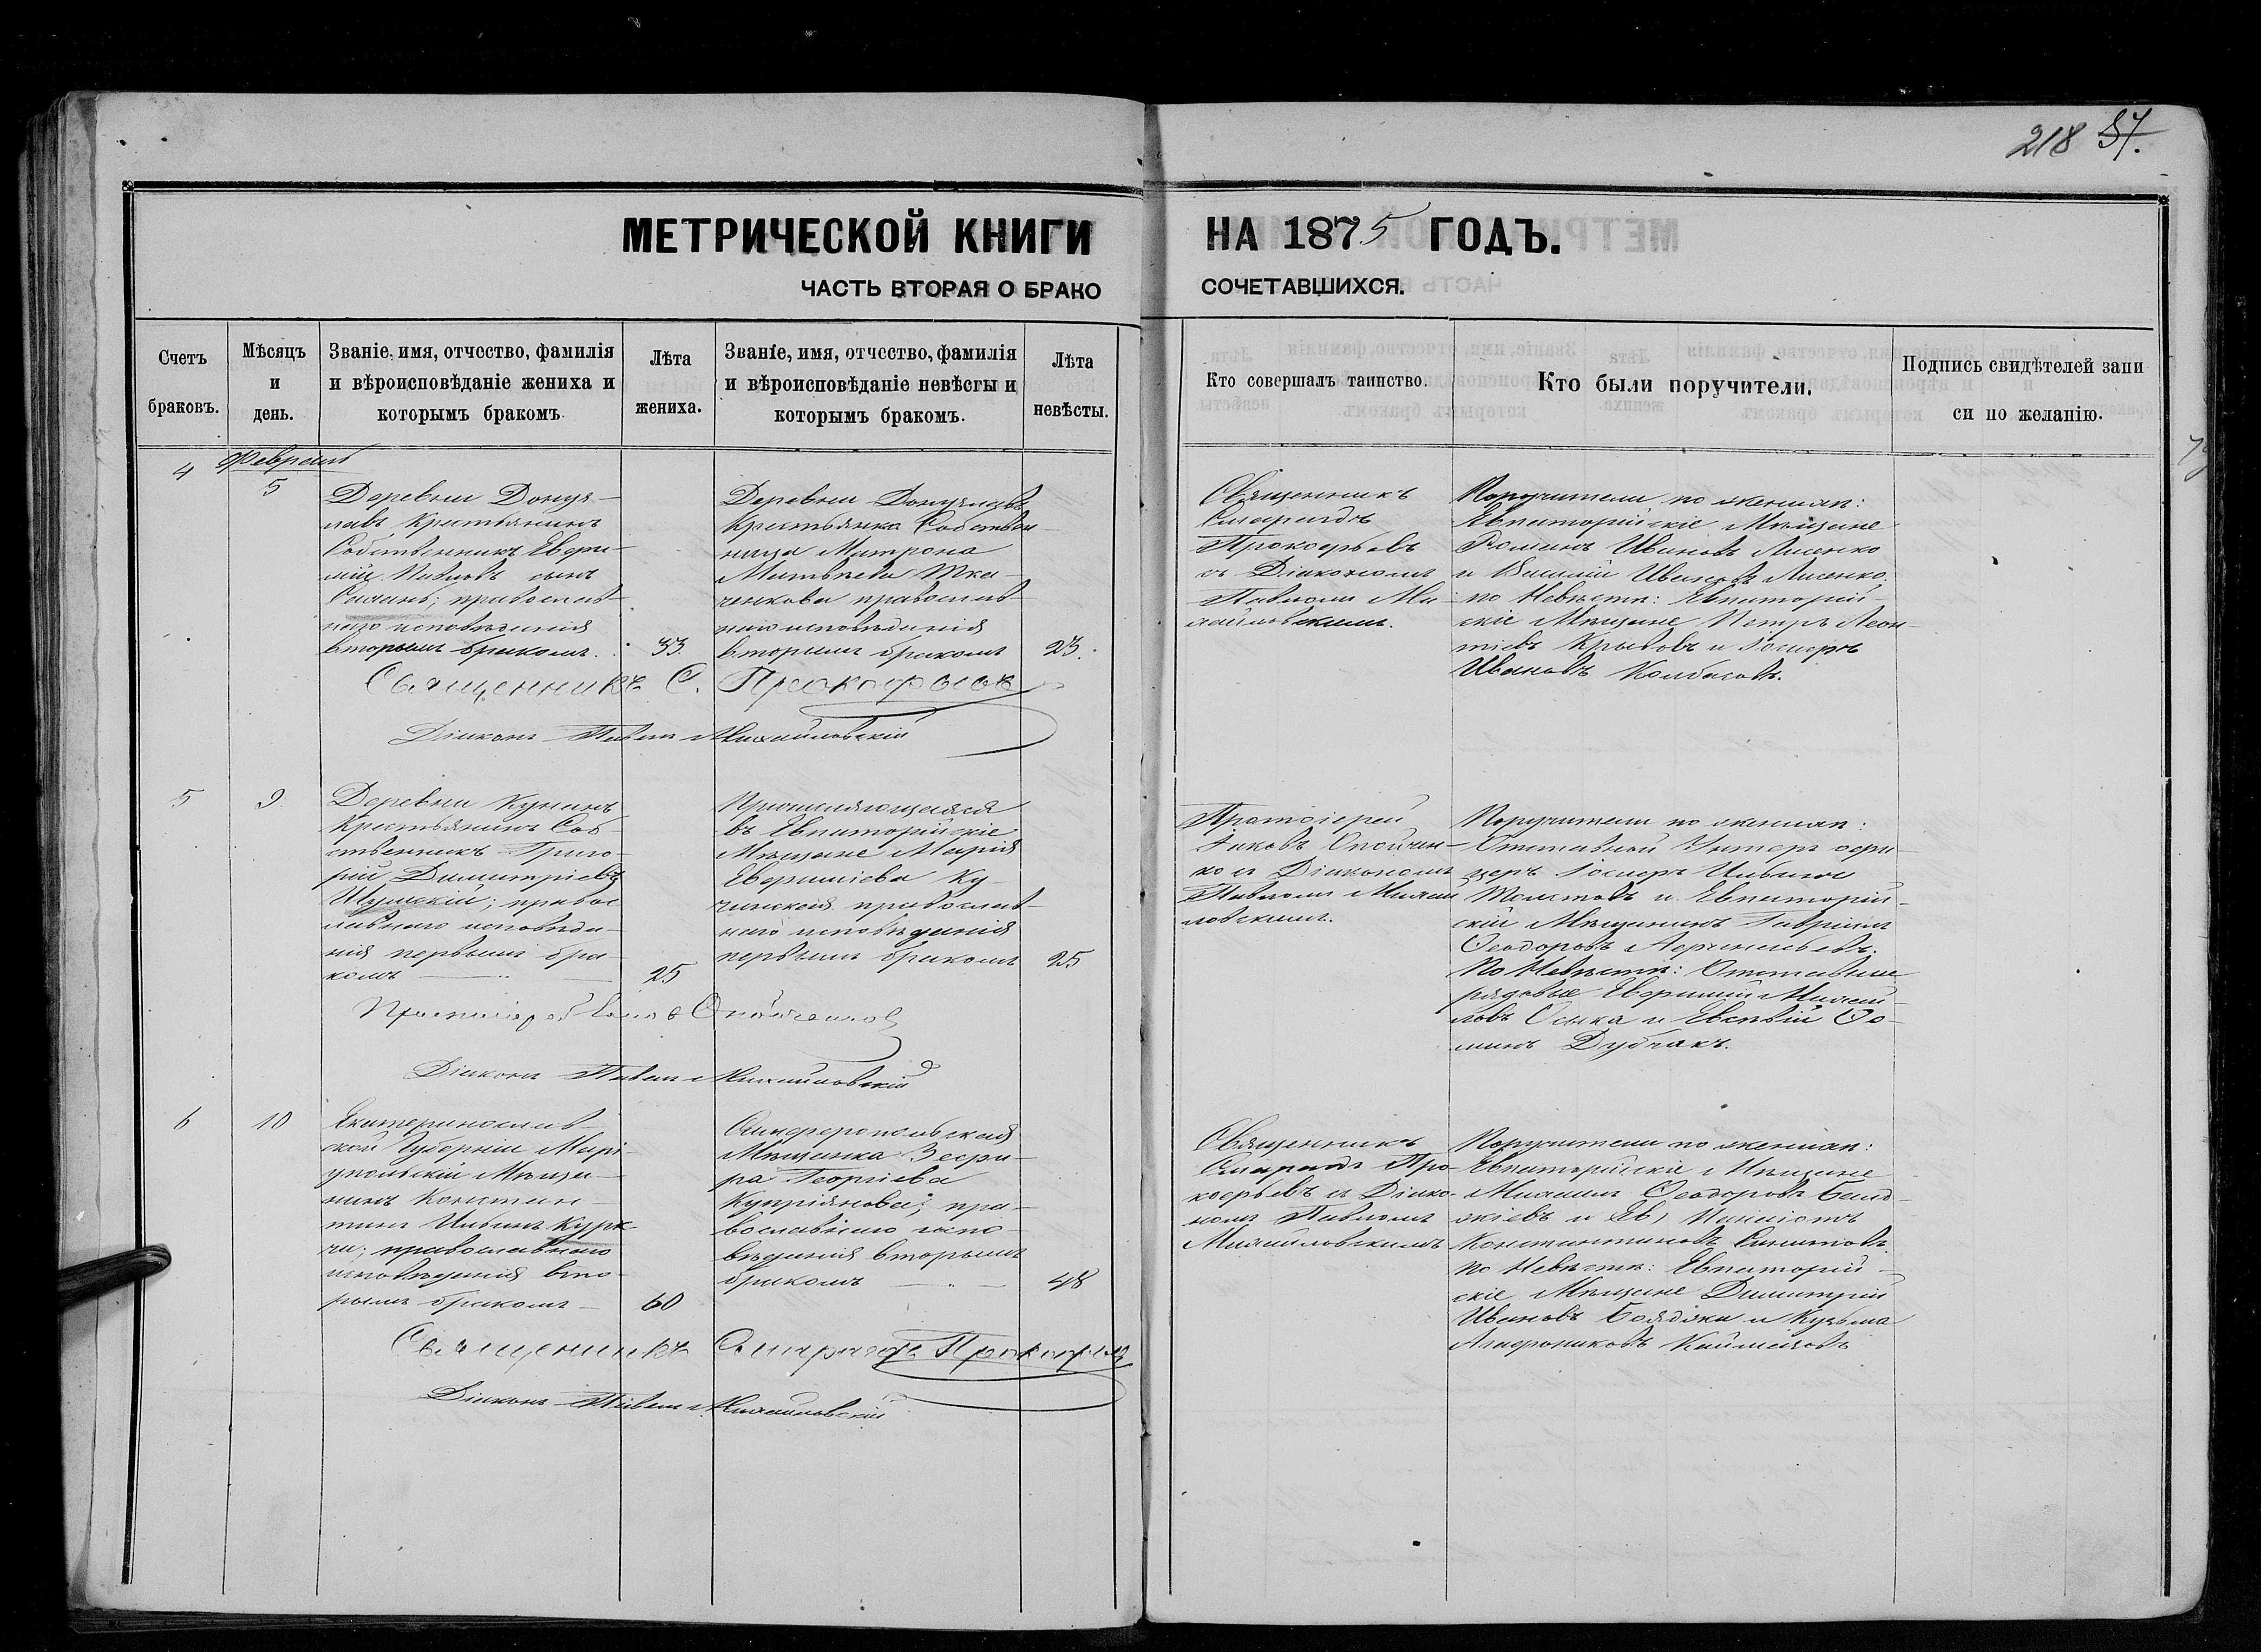 218 57.
МЕТРИЧЕСКОЙ КНИГИ НА 1875 ГОДЪ.
ЧАСТЬ ВТОРАЯ О БРАКО СОЧЕТАВШИХСЯ.
Счетъ браковъ.
Мѣсяцъ и день.
Званіе, имя, отчество, фамилія
и вѣроисповѣданіе жениха и
которымъ бракомъ
Лѣта
жениха.
Званіе, имя, отчество, фамилія
и вѣроисповѣданіе невѣсты и
которымъ бракомъ.
Лѣта
невѣсты.
Кто совершалъ таинство.
Кто были поручители.
Подпись свидѣтелей запи
си по желанію.
4
Февраль
5
Деревни Донуз-
лавъ Крестьянинъ
Собственникъ Евфи-
мій Павловъ сынъ
православ-
наго исповѣданія
вторымъ бракомъ.
33.
Деревни Донузлавъ
Крестьянка Собствен-
ница Матрона
Матвѣева Тка-
ченкова православ-
наго исповѣданія
вторымъ бракомъ
23.
Священникъ
Смарагдъ
Прокофьевъ
съ Діакономъ
Павломъ Ми-
хайловскимъ.
Поручители по женихѣ:
Евпаторійскіе Мѣщане
Романъ Ивановъ Лисенко
и Василій Ивановъ Лисенко.
по Невѣстѣ: Евпаторій-
скіе Мѣщане Петръ Леон-
тіевъ Крыловъ и Іосифъ
Ивановъ Колбасовъ.
Священникъ С. Прокофьевъ
Діаконъ Павелъ Михайловскій
5
9.
Деревни Кунанъ
Крестьянинъ Соб-
ственникъ Григо-
рій Димитріевъ
Шумскій; правос
лавнаго исповѣда-
нія первымъ бра-
комъ
25
Причисляющаяся
въ Евпаторійскіе
Мѣщане Марія
Евфиміева Ку-
чинская православ-
наго исповѣданія
первымъ бракомъ
25
Протоіерей
Іаковъ Опойчен-
ко съ Діакономъ
Павломъ Михай
ловскимъ.
Поручители по женихѣ:
Отставной Унтеръ офи-
церъ Іосифъ Ивановъ
Толстовъ и Евпаторій-
скій Мѣщанинъ Гавріилъ
Ѳеодоровъ
По Невѣстѣ: Отставные
рядовые Евфимій Михай-
ловъ Оська и Евсѣвій Ѳо-
минъ Дубчакъ.
Протоіерей Іаковъ Опойченко
Діаконъ Павелъ Михайловскій
6
10
Екатеринослав-
ской Губерніи Марі-
упольскій Мѣща-
нинъ Констан-
тинъ Ивановъ Курк-
чи; православнаго
исповѣданія вто-
рымъ бракомъ
60
Симферопольская
Мѣщанка Зефи-
ра Георгіева
Купріянова; пра-
вославнаго испо-
вѣданія вторымъ
бракомъ
48
Священникъ
Смарагдъ Про-
кофьевъ съ Діако-
номъ Павломъ
Михайловскимъ
Поручители по женихѣ:
Евпаторійскіе Мѣщане
Михаилъ Ѳеодоровъ
и
Константиновъ
по Невѣстѣ: Евпаторій-
скіе Мѣщане Димитрій
Ивановъ Бояджи и Кузьма
Священникъ Смарагдъ Прокофьевъ
Діаконъ Павелъ Михайловскій